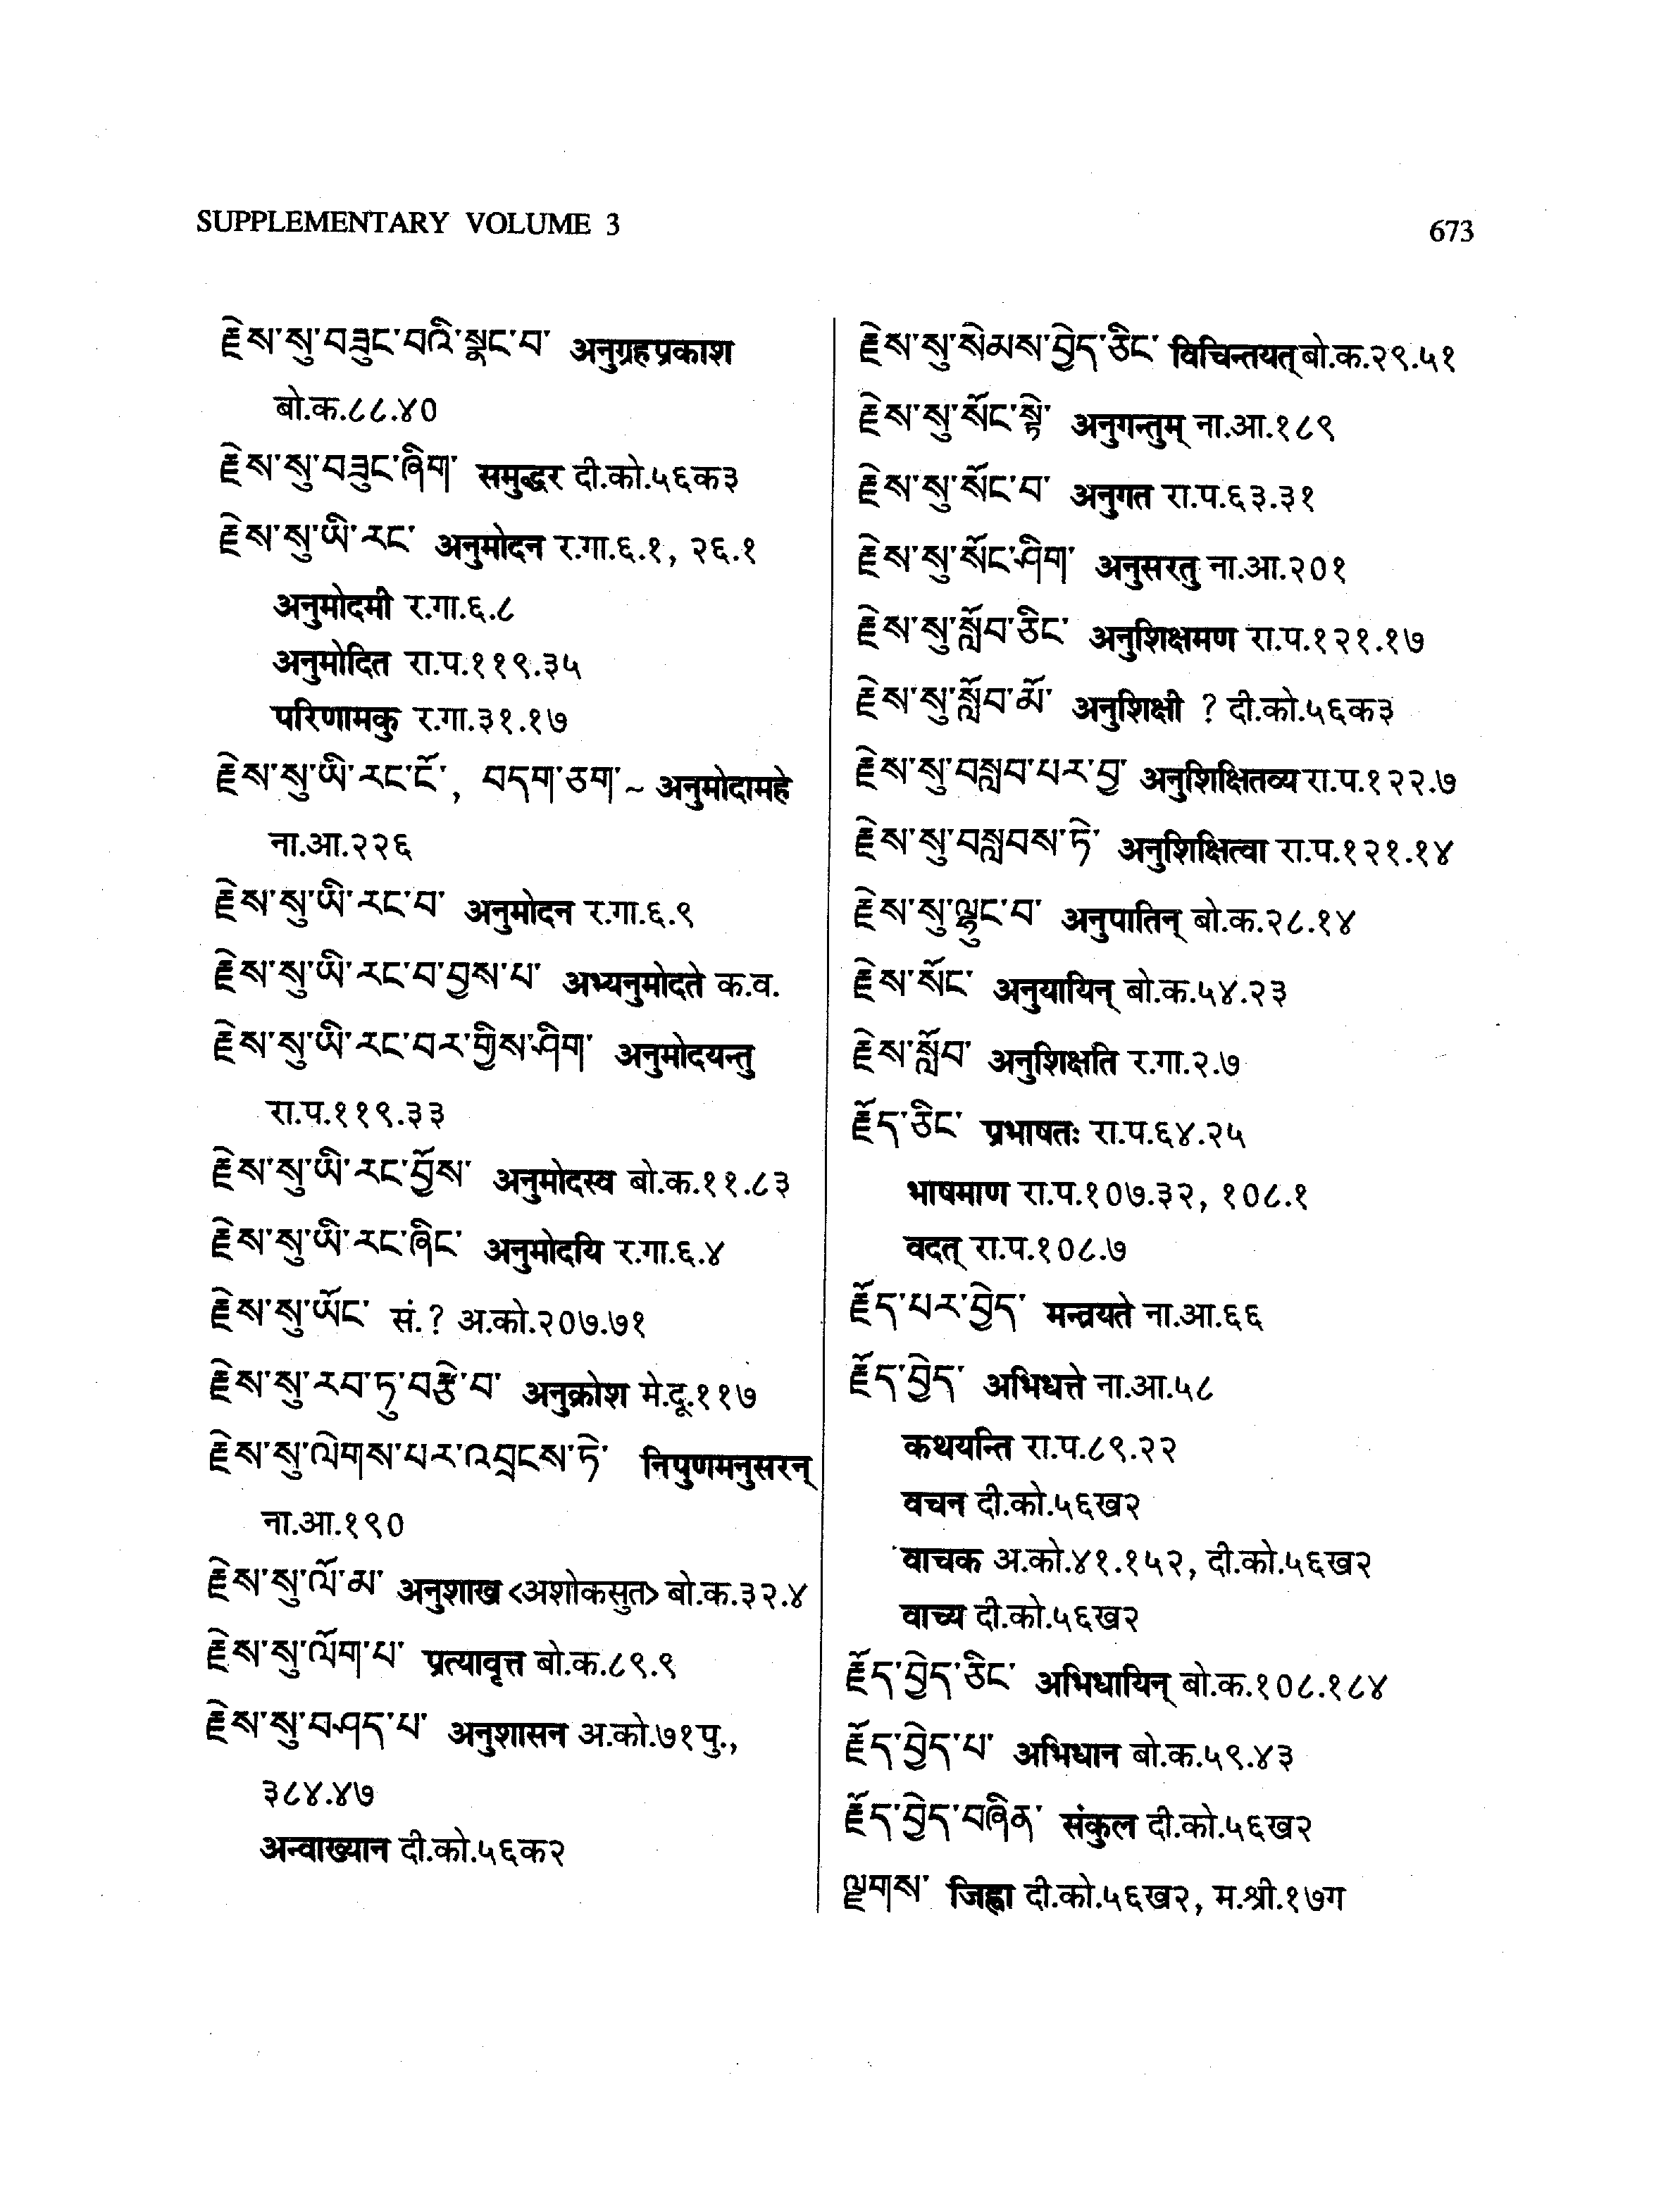 SUPPLEMENTARY VOLUME 3
673
རྗེས་སུ་བཟུང་བའི་སྣང་བ་ अनुग्रहप्रकाश
बो.क.८८.४०
རྗེས་སུ་བཟུང་ཞིག་ समुद्धर दी.को.५६क३
རྗེས་སུ་ཡི་རང་ अनुमोदन र.गा.६.१, २६.१
अनुमोदमी र.गा.६.८
अनुमोदित रा.प.११९.३५
परिणामकु र.गा.३१.१७
རྗེས་སུ་ཡི་རང་ངོ་, བདག་ཅག་~ अनुमोदामहे
ना.आ.२२६
རྗེས་སུ་ཡི་རང་བ་ अनुमोदन र.गा.६.९
རྗེས་སུ་ཡི་རང་བ་བྱས་པ་ अभ्यनुमोदते क.व.
རྗེས་སུ་ཡི་རང་བར་གྱིས་ཤིག་ अनुमोदयन्तु
रा.प.११९.३३
རྗེས་སུ་ཡི་རང་བྱོས་ अनुमोदस्व बो.क.११.८३
རྗེས་སུ་ཡི་རང་ཞིང་ अनुमोदयि र.गा.६.४
རྗེས་སུ་ཡོང་ सं.? अ.को.२०७.७१
རྗེས་སུ་རབ་ཏུ་བརྩེ་བ་ अनुक्रोश मे.दू.११७
རྗེས་སུ་ལེགས་པར་འབྲངས་ཏེ་ निपुणमनुसरन्
ना.आ.१९०
རྗེས་སུ་ལོ་མ་ अनुशाख <अशोकसुत> बो.क.३२.४
རྗེས་སུ་ལོག་པ་ प्रत्यावृत्त बो.क.८९.९
རྗེས་སུ་བཤད་པ་ अनुशासन अ.को.७१पु.,
३८४.४७
अन्वाख्यान दी.को.५६क२
རྗེས་སུ་སེམས་བྱེད་ཅིང་ विचिन्तयत् बो.क.२९.५१
རྗེས་སུ་སོང་སྟེ་ अनुगन्तुम् ना.आ.१८९
རྗེས་སུ་སོང་བ་ अनुगत रा.प.६३.३१
རྗེས་སུ་སོང་ཤིག་ अनुसरतु ना.आ.२०१
རྗེས་སུ་སློབ་ཅིང་ अनुशिक्षमण रा.प.१२१.१७
རྗེས་སུ་སློབ་མོ་ अनुशिक्षी ? दी.को.५६क३
རྗེས་སུ་བསླབ་པར་བྱ་ अनुशिक्षितव्य रा.प.१२२.७
རྗེས་སུ་བསླབས་ཏེ་ अनुशिक्षित्वा रा.प.१२१.१४
རྗེས་སུ་ལྷུང་བ་ अनुपातिन् बो.क.२८.१४
རྗེས་སོང་ अनुयायिन् बो.क.५४.२३
རྗེས་སློབ་ अनुशिक्षति र.गा.२.७
རྗོད་ཅིང་ प्रभाषतः रा.प.६४.२५
भाषमाण रा.प.१०७.३२, १०८.१
वदत् रा.प.१०८.७
རྗོད་པར་བྱེད་ मन्त्रयते ना.आ.६६
རྗོད་བྱེད་ अभिधत्ते ना.आ.५८
कथयन्ति रा.प.८९.२२
वचन दी.को.५६ख२
वाचक अ.को.४१.१५२, दी.को.५६ख२
वाच्य दी.को.५६ख२
རྗོད་བྱེད་ཅིང་ अभिधायिन् बो.क.१०८.१८४
རྗོད་བྱེད་པ་ अभिधान बो.क.५९.४३
རྗོད་བྱེད་བཞིན་ संकुल दी.को.५६ख२
ལྗགས་ जिह्वा दी.को.५६ख२, म.श्री.१७ग